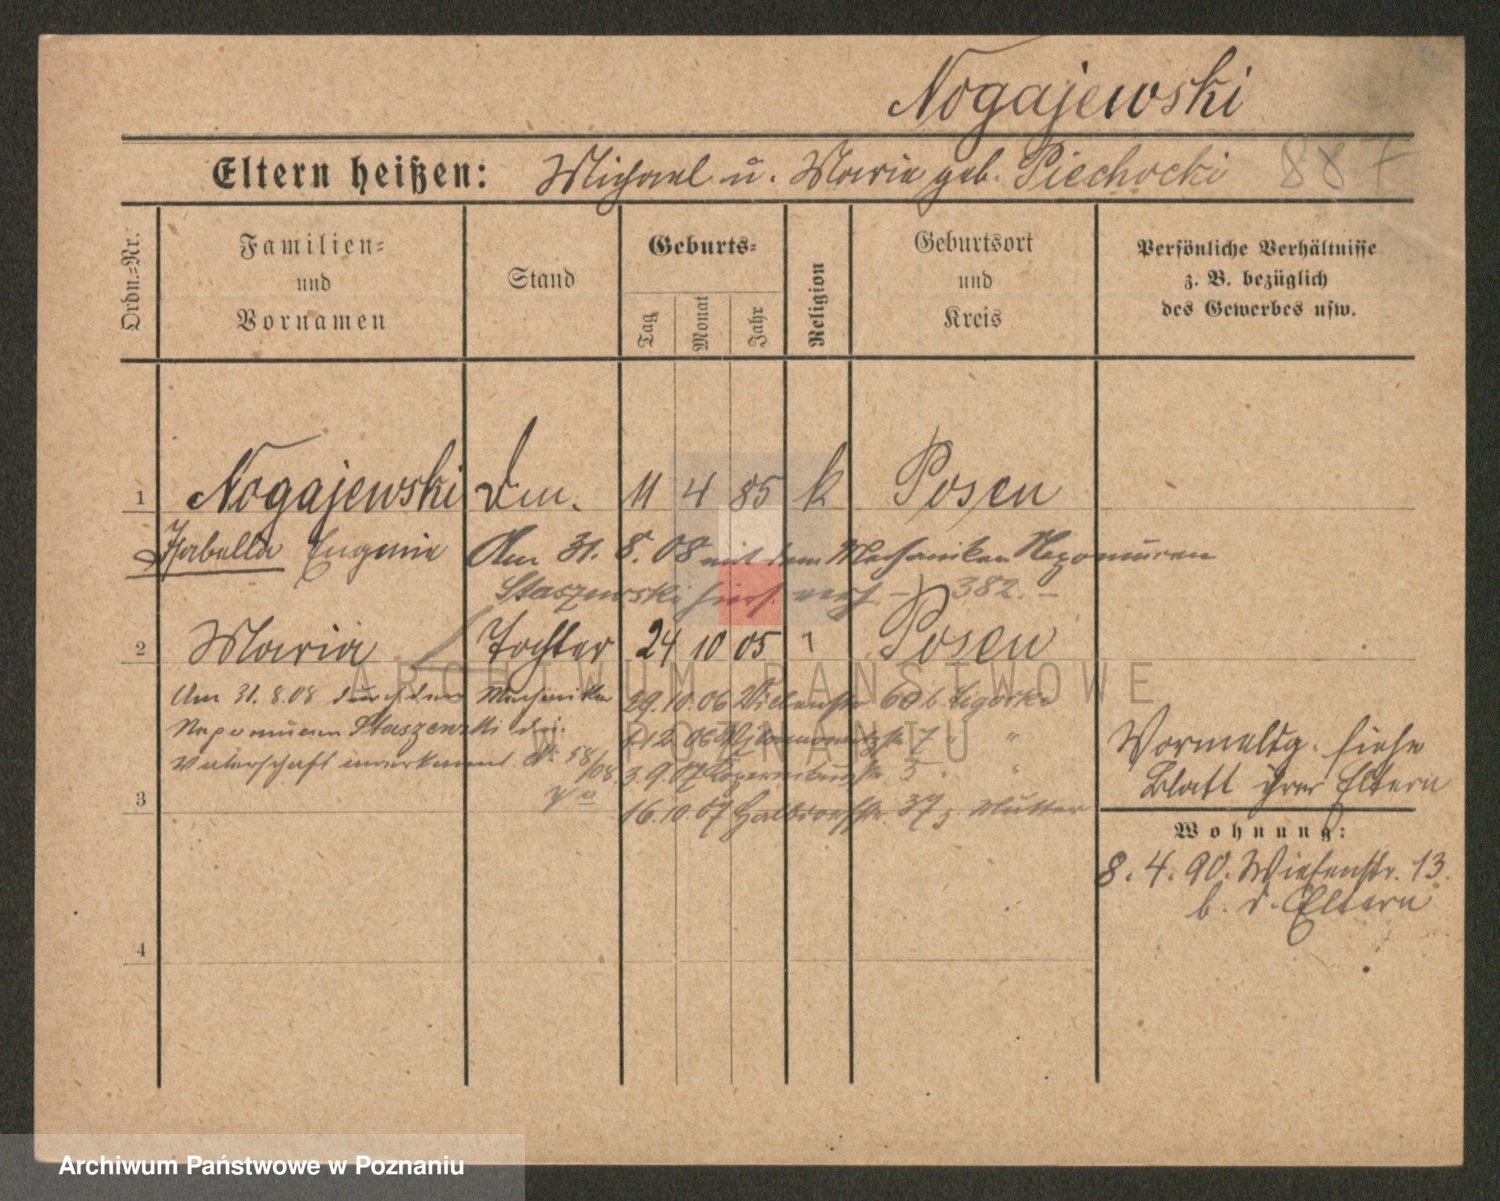 Nogajewski
Eltern heißen: Michael u. Maria geb. Piechocki 887
Ordn.-Nr.
Familien- und Vornamen
Stand
Geburts-
Tag Monat Jahr
Religion
Geburtsort und Kreis
Persönliche Verhältnisse z. B. bezüglich des Gewerbes usw.
1 Nogajewski 11 4 85 k Posen
Isabella Eugenie Am 31. 8. 08 mit dem Mechaniker Nepomucen
Staszewski hiers. verh 382.
2 Maria Tochter 24 10 05 " Posen
Am 31. 8. 08 durch den Mechaniker
Nepomucen Staszewski die
Vaterschaft anerkannt. № 58/08.
29. 10. 06 60 b Ligocka
12 06 7 "
3. 9. 07 5 "
16. 10. 07 37 z Mutter
3
Vormaldg. siehe
Blatt ihrer Eltern
Wohnung:
8. 4. 90. Wiesenstr. 13.
b. d. Eltern
4
ARCHIWUM PAŃSTWOWE
W POZNANIU
Archiwum Państwowe w Poznaniu